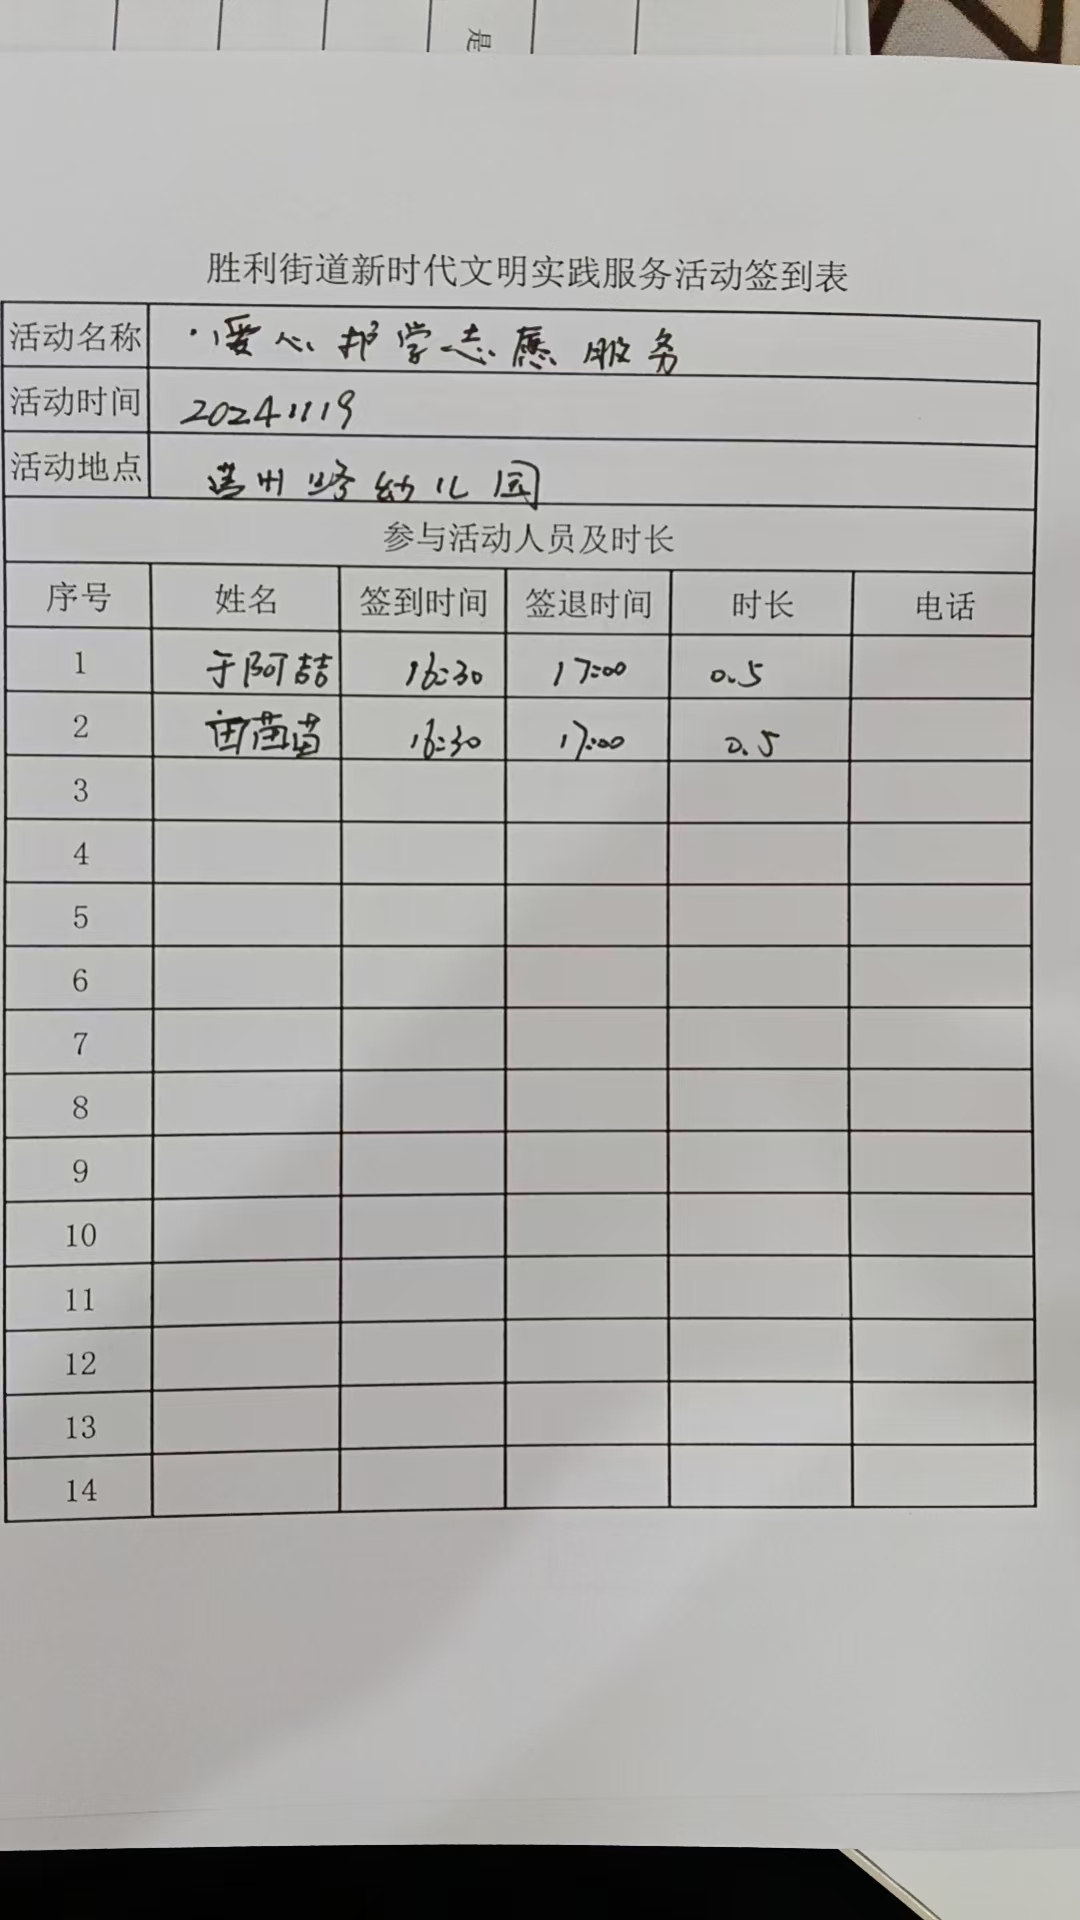 是
胜利街道新时代文明实践服务活动签到表
活动名称 爱心护学志愿服务
活动时间 20241119
活动地点 莒州路幼儿园
参与活动人员及时长
序号 姓名 签到时间 签退时间 时长 电话
1 于阿喆 16:30 17:00 0.5
2 田苗苗 16:30 17:00 0.5
3
4
5
6
7
8
9
10
11
12
13
14